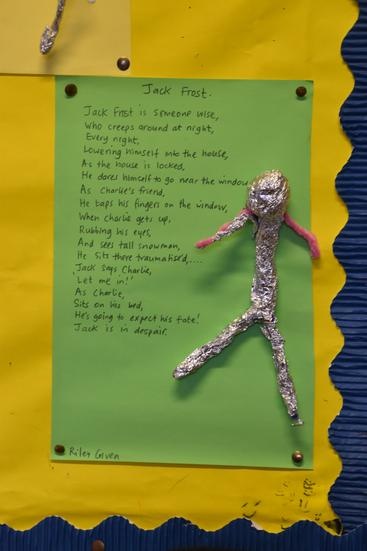 Jack Frost.
Jack Frost is someone wise,
Who creeps around at night,
Every night,
Lowering himself into the house,
As the house is locked,
He dares himself to go near the window
As Charlie's friend,
He taps his fingers on the window,
When charlie gets up,
Rubbing his eyes,
And sees tall snowman,
He sits there traumatised,....
Jack says Charlie,
'Let me in!'
As Charlie,
Sits on his bed,
He's going to expect his fate!
Jack is in despair.
Riley Given